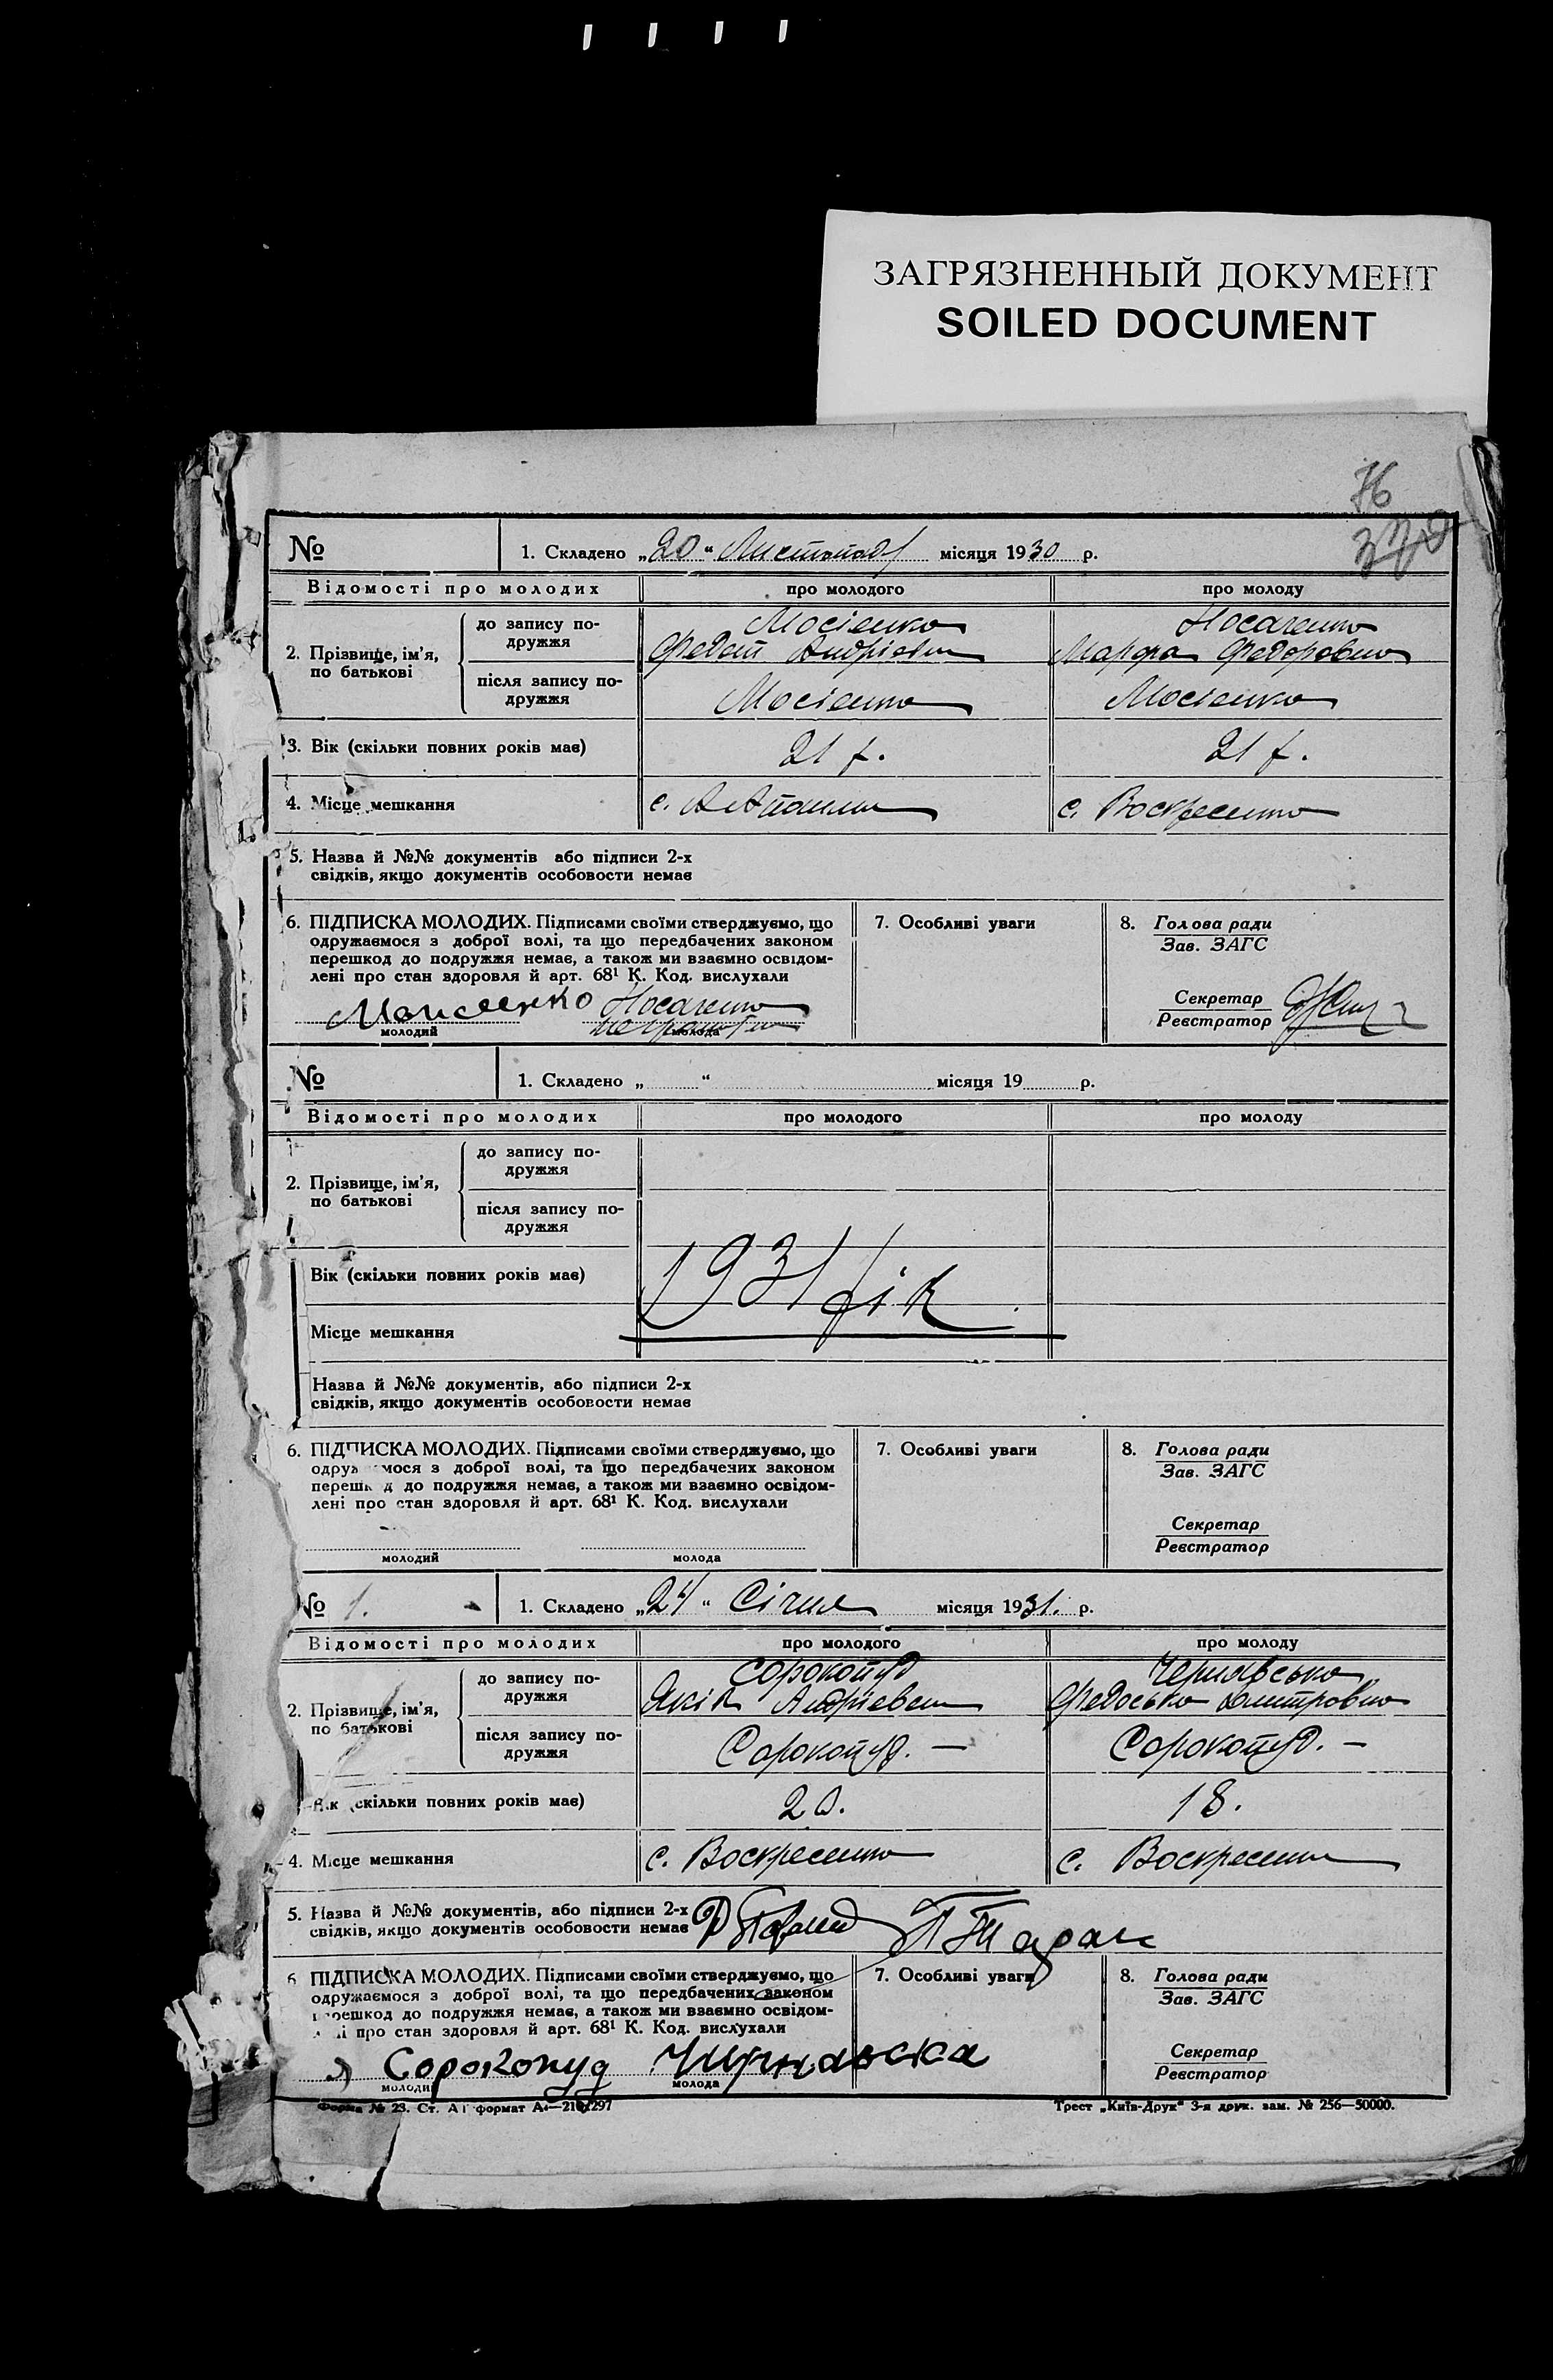 ЗАГРЯЗНЕННЫЙ ДОКУМЕНТ
SOILED DOCUMENT
76
№ 1. Складено „20“ Листопада місяця 1930 р.
Відомості про молодих про молодого про молоду
2. Прізвище, ім'я, по батькові
до запису подружжя
Мосіенко
Федот Андріевич
Носаченко
Марфа Федоровна
після запису подружжя
Мосіенко Мосіенко
3. Вік (скільки повних років має) 21 р. 21 р.
4. Місце мешкання с. с. Воскресенка
5. Назва й №№ документів або підписи 2-х
свідків, якщо документів особовости немає
6. ПІДПИСКА МОЛОДИХ. Підписами своїми стверджуємо, що
одружаємося з доброї волі, та що передбачених законом
перешкод до подружжя немає, а також ми взаємно освідом-
лені про стан здоровля й арт. 68¹ К. Код. вислухали
Моисеенко Носаченко
неграмотна
молодий молода
7. Особливі уваги
8. Голова ради
Зав. ЗАГС
Секретар
Реєстратор
№ 1. Складено „ “ місяця 19 р.
Відомості про молодих про молодого про молоду
2. Прізвище, ім'я, по батькові
до запису подружжя
після запису подружжя
Вік (скільки повних років має)
1931 рік
Місце мешкання
Назва й №№ документів, або підписи 2-х
свідків, якщо документів особовости немає
6. ПІДПИСКА МОЛОДИХ. Підписами своїми стверджуємо, що
мося з доброї волі, та що передбачених законом
до подружжя немає, а також ми взаємно освідом-
лені про стан здоровля й арт. 68¹ К. Код. вислухали
молодий молода
7. Особливі уваги
8. Голова ради
Зав. ЗАГС
Секретар
Реєстратор
№ 1. 1. Складено „24“ Січня місяця 1931. р.
Відомості про молодих про молодого про молоду
2. Прізвище, ім'я, по батькові
до запису подружжя
Сорокопуд
Яків Андріевич
Чернявська
Федоська Дмитровна
після запису подружжя
Сорокопуд. — Сорокопуд. —
Вік (скільки повних років має) 20. 18.
4. Місце мешкання с. Воскресенка с. Воскресенка
5. Назва й №№ документів, або підписи 2-х
свідків, якщо документів особовости немає
Таран
6 ПІДПИСКА МОЛОДИХ. Підписами своїми стверджуємо, що
одружаємося з доброї волі, та що передбачених законом
перешкод до подружжя немає, а також ми взаємно освідом-
про стан здоровля й арт. 68¹ К. Код. вислухали
Я Сорокопуд Чирнавска
молодий молода
7. Особливі уваги
8. Голова ради
Зав. ЗАГС
Секретар
Реєстратор
Форма № 23. Ст. А1 формат А4—210×297
Трест „Київ-Друк“ 3-я друк. зам. № 256—50000.